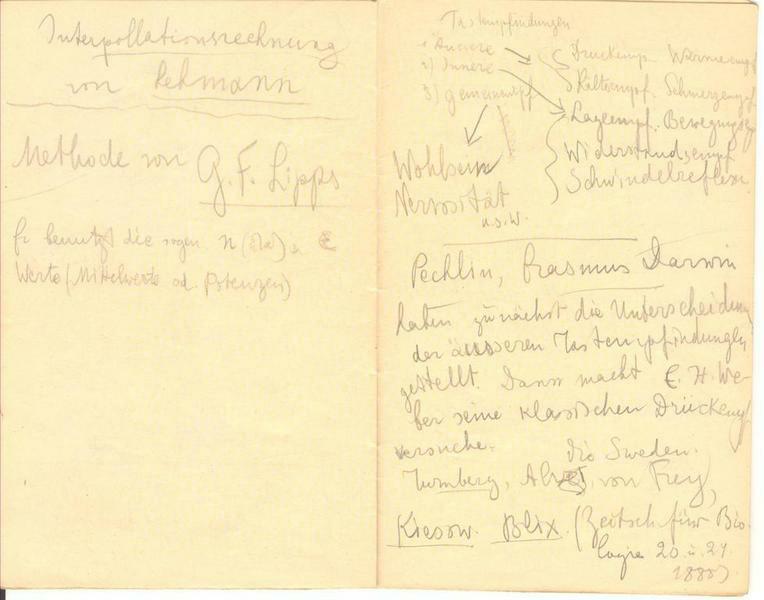 Interpollationsrechnung
von Lehmann
Methode von
G. F. Lipps
Er benutzt die sogen. n
Werte (Mittelwerte od. Potenzen)
Tastempfindungen
1) Äussere
2) Innere
3) Gemeinempf.
Druckemp. Wärmeempf
Kälteempf. Schmerzempf
Lageempf. Bewegungse
Widerstandsempf
Schwindelreflexe
Wohlsein
Nervosität
u.s.w.
Pechlin, Erasmus Darwin
haben zunächst die Unterscheidung
der äusseren Tastempfindungen
gestellt. Dann macht E. H. We-
ber seine klassischen Druckempf
versuche.
die Sweden.
von Frey,
Kiesow. Blix. (Zeitsch. für Bio-
logie 20 u. 21.
1885)